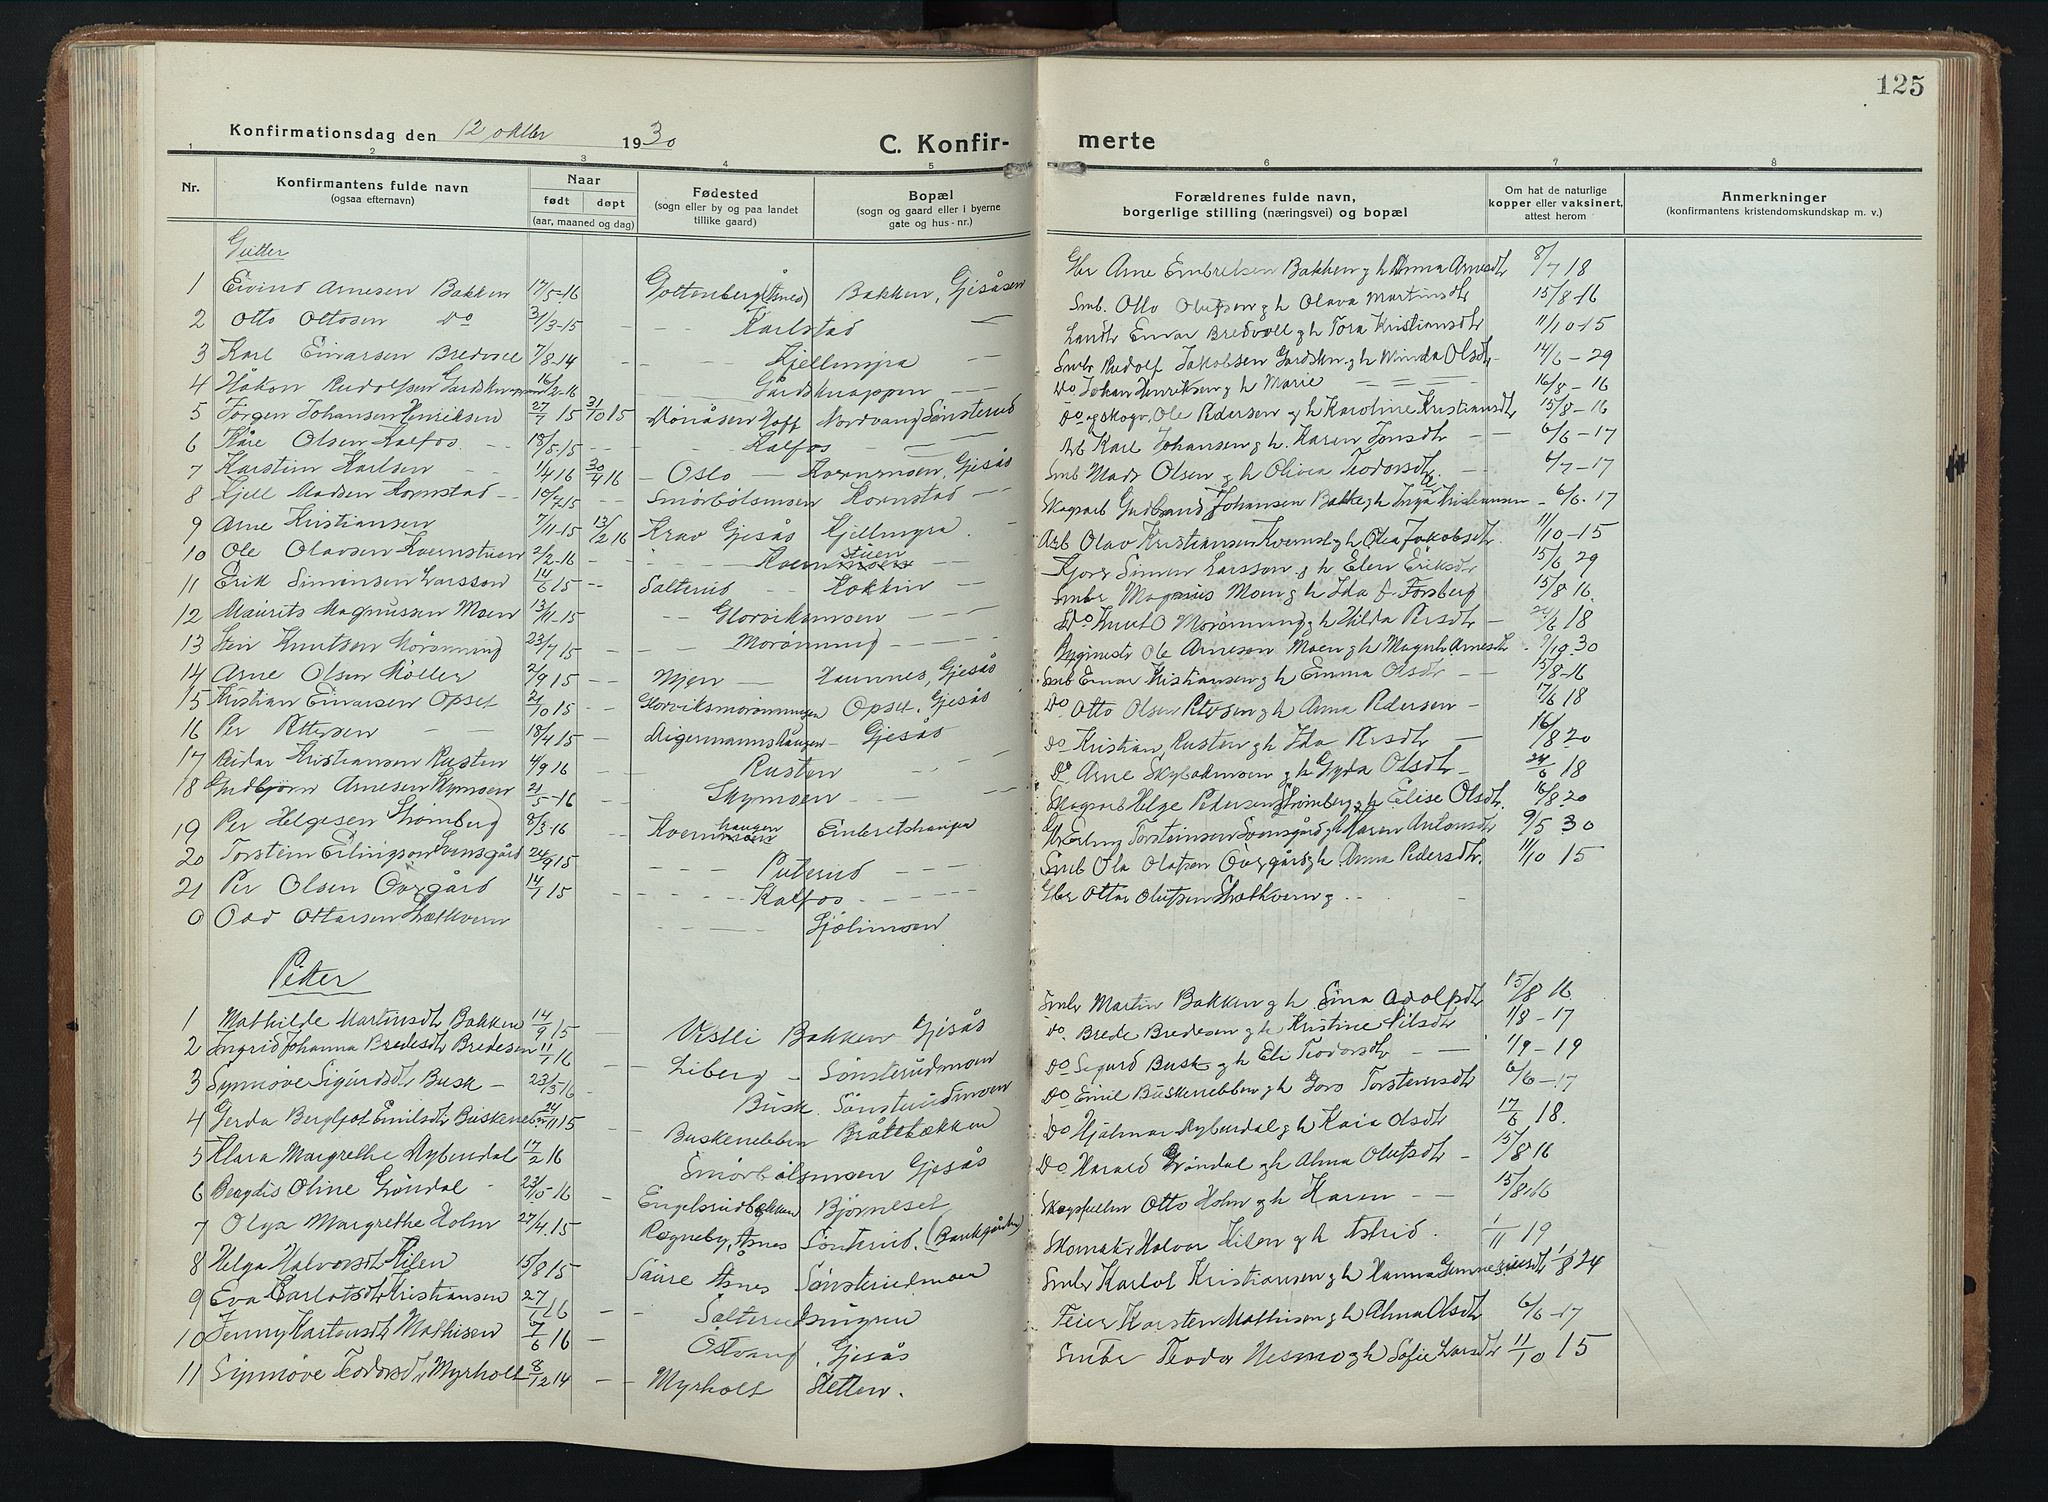 125
Konfirmationsdag den 12 oktbr 1930
C. Konfirmerte
1 2 3 4 5 6 7 8
Nr.
Konfirmantens fulde navn (ogsaa efternavn)
Naar født døpt (aar, maaned og dag)
Fødested (sogn eller by og paa landet tillike gaard)
Bopæl (sogn og gaard eller i byerne gate og hus-nr.)
Forældrenes fulde navn, borgerlige stilling (næringsvei) og bopæl
Om hat de naturlige kopper eller vaksinert, attest herom
Anmerkninger (konfirmantens kristendomskundskap m. v.)
Gutter
1 Eivind Arnesen Bakken 17/5-16 Gottenberg (Åsnes) Bakken, Gjesåsen Gbr Arne Embretsen Bakken g h Anna Arnesdtr 8/7 18
2 Otto Ottosen Do 31/3-15 - - Karlstad - Smb. Otto Olufsen g h Olava Martinsdtr 15/8-16
3 Karl Einarsen Bredvoll 7/8-14 - - Kjellmyra - - Landh Einar Bredvoll g h Tora Kristiansdtr 11/10-15
4 Håkon Rudolfsen Gardsknappen 16/2-16 Gårdsknappen - - Smbr Rudolf Jakobsen Gardskn. g h Minda Olsdtr 14/6-29
5 Jørgen Johansen Henriksen 27/7 15 31/10 15 Monåsen Hoff Nordvang Sønsterud Do Johan Henriksen g h Marie 16/8-16
6 Kåre Olsen Kalfos 13/5-15 - - Kalfos - - Do og skogv. Ole Pedersen g h Karoline Kristiansdtr 15/8-16
7 Karstein Karlsen 1/4 16 30/4 16 - Oslo - Kvernmoen, Gjesås Arb Karl Johansen g h. Karen Jonsdtr - - 6/6-17
8 Kjell Madsen Kornstad 10/7-15 - - Smörbölsmoen Kornstad - - Smb Mads Olsen g h Olivia Teodorsdtr. - 6/7-17
9 Arne Kristiansen 7/11-15 13/2 16 Krav Gjesås Kjellmyra - Skogsarb Gudbrand Johansen Bakke g h Inga Kristiansen - 6/6-17
10 Ole Olavsen Kvernstuen 2/2-16 - - - Kvernstuen - - Arb Olav Kristiansen Kvernst. g h Olea Jakobsdtr. 11/10-15
11 Erik Simensen Larsson 14/6 15 - - Salterud - - Kokkin - Kjører Simen Larsson g h Elen Eriksdtr 15/6 29
12 Maurits Magnussen Moen 13/11-15 - - Glorviksmoen - Smbr Magnus Moen g h Ida F. Forsberg 15/8 16.
13 Stein Knutsen Morönning 23/7 15 - Morönning - - - Do Knut O Morönning g h Hilda Persdtr - 20/6 18
14 Arne Olsen Möller 2/9 15 - - Mjen - Haunnes, Gjesås Bygmestr Ole Arneson Moen g h Magnh. Arnesdtr - 9/10.30
15 Kristian Einarsen Opset 21/10 15 - - Glorviksmorönningen Opset, Gjesås Smb Einar Kristiansen g h Emma Olsdtr - - 15/8-16
16 Per Pettersen - - 18/4 15 - Migermannshaugen - Gjesås Do Otto Olsen Petersen g h Anna Pedersen - 17/6 18
17 Reidar Kristiansen Rusten 4/9 16 - - Rusten - - - Do Kristian Rusten g h Ida Persdtr - 16/8 20
18 Gudbjørn Arnesen Skymoen 21/5-16 - - Skymoen - - - Do Arne Skybakmoen g h Gyda Olsdtr - 24/6 18
19 Per Helgesen Strömberg 8/3-16 - Kvernhaugen Embretshaugen Skogsarb Helge Pedersen Strömberg g h Elise Olsdtr. 16/8 20
20 Torstein Erlingson Svensgård 24/9 15 - - - Puterud - - Gbr Erling Torsteinsen Svensgård g h Karen Antonsdtr 9/5 30
21 Per Olsen Övergård 14/1 15 - - - - Kalfos - - - - Smb Ola Olafsen Övergård g h Anna Pedersdtr. 11/10 15
0 Odd Ottarsen Skathvern - - - - - Sjölimoen Gbr Ottar Olufsen Skathvern g - - -
Piker
1 Mathilde Martinsdtr Bakken 14/9 15 - Vestli Bakken Gjesås Smbr Martin Bakken g h Lina Adolfsdtr 15/8 16
2 Ingrid Johanna Bredesdtr Bredesen 11/1 16 Liberg - Sönsterudmoen Do. Brede Bredesen g h Kristine Nilsdtr 1/8-17
3 Synnöve Sigurdsdtr Busk - 23/3-16 - Busk. Sönsterudmoen Do Sigurd Busk g h Eli Teodorsdtr - - 1/9-19
4 Gerda Bergljot Emilsdtr Buskeneb. 24/11 15 - - Buskenebben Bråtebækken Do Emil Buskenebben g h Goro Torsteinsdtr 6/6-17
5 Klara Margrethe Nyberdal 17/2 16 - Smörbölsmoen Gjesås Do Hjalmar Nyberdal g h Kaia Olsdtr 17/6 18.
6 Bergdis Oline Gröndal - 23/5-16 - Engelsrudbakken Björneset Do Harald Gröndal g h Alma Olufsdtr - 15/8 16
7 Olga Margrethe Holm 27/4.15 Rogneby, Åsnes Sönsterud. (Bankgården) Skogsfulln Otto Holm g h Karen - - 15/8 16
8 Helga Halvorsdtr Kilen 15/8 15 Saure Åsnes Sönsterudmoen Skomaker Halvor Kilen g h Astrid. 1/11 19
9 Eva Karlotsdtr Kristiansen 27/1 16 - - Salterud Smbr Karlot Kristiansen g h Hanna 1/8 24
10 Jenny Karstensdtr Mathisen 7/6 16 - Östvang Gjesås Feier Karsten Mathisen g h Alma Olsdtr 6/6-17
11 Synnöve Teodorsdtr Myrholt 8/12 14 - - Myrholt Sletten. Smbr Teodor Nesmo g h Sofie Larsdtr 11/10 15